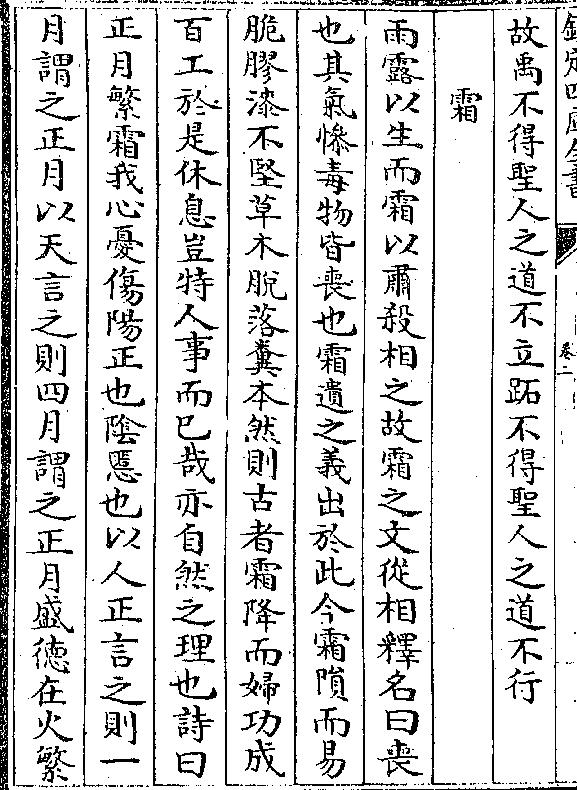 欽定四庫全書
卷二
故禹不得聖人之道不立跖不得聖人之道不行
霜
雨露以生而霜以肅殺相之故霜之文從相釋名曰喪
也其氣慘毒物皆喪也霜遺之義出於此今霜隕而易
脆膠漆不堅草木脫落糞本然則古者霜降而婦功成
百工於是休息豈特人事而已哉亦自然之理也詩曰
正月繁霜我心憂傷陽正也陰慝也以人正言之則一
月謂之正月以天言之則四月謂之正月盛德在火繁